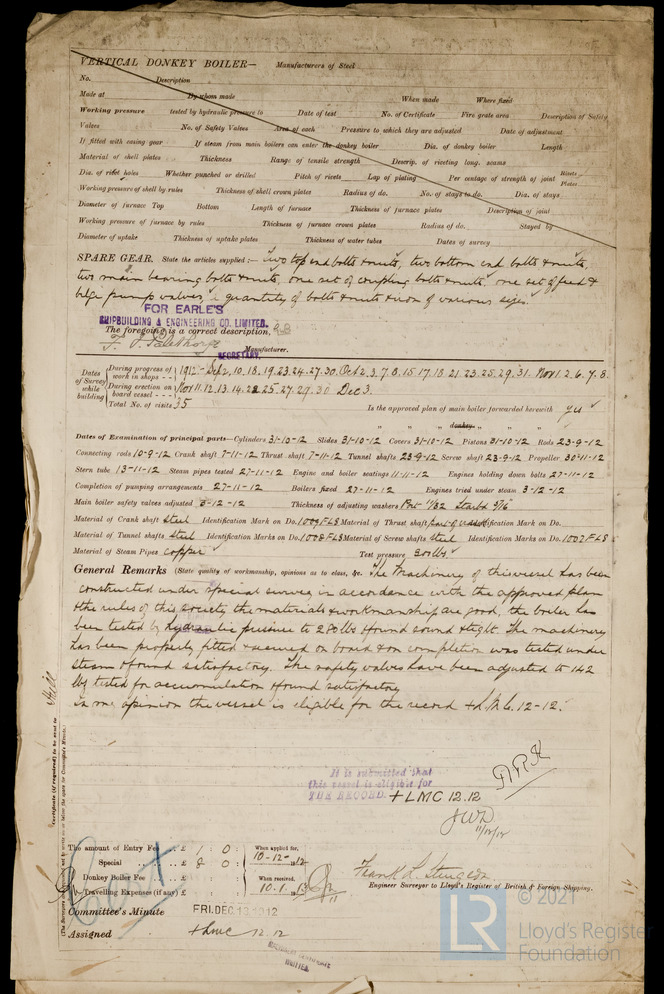 VERTICAL DONKEY BOILER— Manufacturers of Steel
No. Description
Made at By whom made When made Where fixed
Working pressure tested by hydraulic pressure to Date of test No. of Certificate Fire grate area Description of Safety
Valves No. of Safety Valves Area of each Pressure to which they are adjusted Date of adjustment
If fitted with easing gear If steam from main boilers can enter the donkey boiler Dia. of donkey boiler Length
Material of shell plates Thickness Range of tensile strength Descrip. of riveting long. seams
Dia. of rivet holes Whether punched or drilled Pitch of rivets Lap of plating Per centage of strength of joint Rivets Plates
Working pressure of shell by rules Thickness of shell crown plates Radius of do. No. of stays to do. Dia. of stays
Diameter of furnace Top Bottom Length of furnace Thickness of furnace plates Description of joint
Working pressure of furnace by rules Thickness of furnace crown plates Radius of do. Stayed by
Diameter of uptake Thickness of uptake plates Thickness of water tubes Dates of survey
SPARE GEAR. State the articles supplied:— Two top end bolts & nuts, two bottom end bolts & nuts,
two main bearing bolts & nuts, one set of coupling bolts & nuts, one set of feed &
bilge pump valves, a quantity of bolts & nuts & iron of various sizes.
FOR EARLE'S
SHIPBUILDING & ENGINEERING CO. LIMITED.
The foregoing is a correct description,
Manufacturer.
SECRETARY.
Dates of Survey while building
During progress of work in shops - - 1912 - Sep 2, 10. 18. 19. 23. 24. 27. 30. Oct 2. 3. 7. 8. 15. 17. 18. 21. 23. 25. 29. 31. Nov 1. 2. 6. 7. 8.
During erection on board vessel - - - Nov 11. 12. 13. 14. 22. 25. 27. 29. 30 Dec 3.
Total No. of visits 35 Is the approved plan of main boiler forwarded herewith yes
" " " donkey " " "
Dates of Examination of principal parts—Cylinders 31-10-12 Slides 31-10-12 Covers 31-10-12 Pistons 31-10-12 Rods 23-9-12
Connecting rods 10-9-12 Crank shaft 7-11-12 Thrust shaft 7-11-12 Tunnel shafts 23-9-12 Screw shaft 23-9-12 Propeller 30-11-12
Stern tube 13-11-12 Steam pipes tested 27-11-12 Engine and boiler seatings 11-11-12 Engines holding down bolts 27-11-12
Completion of pumping arrangements 27-11-12 Boilers fixed 27-11-12 Engines tried under steam 3-12-12
Main boiler safety valves adjusted 3-12-12 Thickness of adjusting washers Port 11/32 Starbd 5/16
Material of Crank shaft Steel Identification Mark on Do. 1009 FLS Material of Thrust shaft Identification Mark on Do.
Material of Tunnel shafts Steel Identification Marks on Do. 1008 FLS Material of Screw shafts Steel Identification Marks on Do. 1002 FLS
Material of Steam Pipes copper Test pressure 300 lbs
General Remarks (State quality of workmanship, opinions as to class, &c. The Machinery of this vessel has been
constructed under special survey in accordance with the approved plan
& the rules of this society, the materials & workmanship are good, the boiler has
been tested by hydraulic pressure to 280 lbs & found sound & tight. The machinery
has been properly fitted & secured on board & on completion was tested under
steam & found satisfactory. The safety valves have been adjusted to 142
lbs & tested for accumulation & found satisfactory
In our opinion the vessel is eligible for the record + L.M.C. 12-12.
It is submitted that
this vessel is eligible for
THE RECORD. + LMC 12.12
JWD
11/12/12
The amount of Entry Fee .. £ 1 : 0 : When applied for,
Special .. £ 8 : 0 : 10-12-1912
Donkey Boiler Fee .. £ : : When received,
Travelling Expenses (if any) £ : : 10.1.1913
Frank L. Sturgeon
Engineer Surveyor to Lloyd's Register of British & Foreign Shipping.
Committee's Minute FRI. DEC 13 1912
Assigned + LMC 12.12
Certificate (if required) to be sent to Hull
© 2021
LR
Lloyd's Register
Foundation